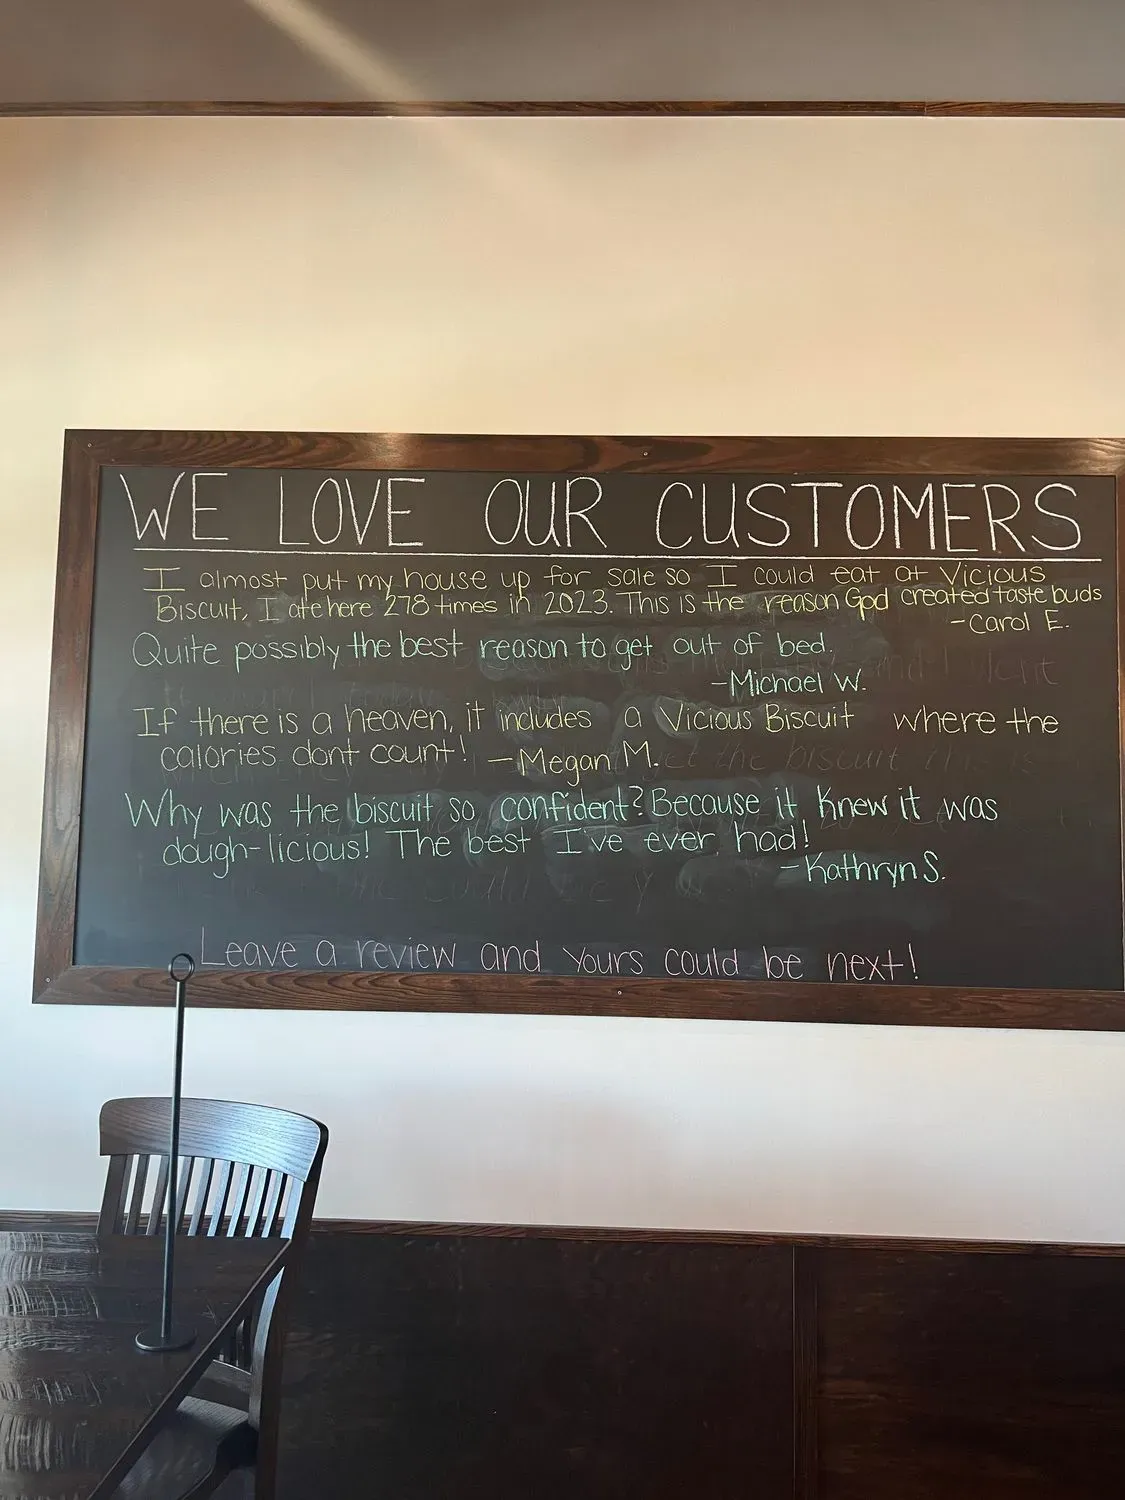 WE LOVE OUR CUSTOMERS
I almost put my house up for sale so I could eat at Vicious
Biscuit, I ate here 278 times in 2023. This is the reason God created taste buds
-Carol E.
Quite possibly the best reason to get out of bed.
-Michael W.
If there is a heaven, it includes a Vicious Biscuit where the
calories dont count! -Megan M.
Why was the biscuit so confident? Because it knew it was
dough-licious! The best I've ever had!
-Kathryn S.
Leave a review and yours could be next!